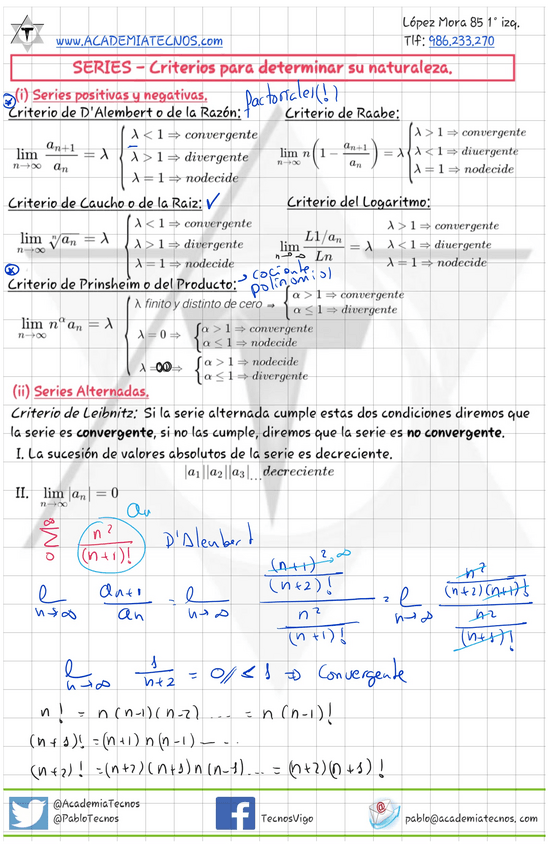 López Mora 85 1° izq.
www.ACADEMIATECNOS.com Tlf: 986.233.270
SERIES – Criterios para determinar su naturaleza.
(i) Series positivas y negativas. factoriales(!)
Criterio de D'Alembert o de la Razón: Criterio de Raabe:
lim n→∞ a_{n+1}/a_n = λ { λ < 1 ⇒ convergente
λ > 1 ⇒ divergente
λ = 1 ⇒ nodecide
lim n→∞ n(1 − a_{n+1}/a_n) = λ { λ > 1 ⇒ convergente
λ < 1 ⇒ diuergente
λ = 1 ⇒ nodecide
Criterio de Caucho o de la Raiz: ✓ Criterio del Logaritmo:
lim n→∞ ⁿ√a_n = λ { λ < 1 ⇒ convergente
λ > 1 ⇒ divergente
λ = 1 ⇒ nodecide
lim n→∞ L1/a_n / Ln = λ λ > 1 ⇒ convergente
λ < 1 ⇒ diuergente
λ = 1 ⇒ nodecide
Criterio de Prinsheim o del Producto: → cociente polinomial
lim n→∞ n^α a_n = λ { λ finito y distinto de cero ⇒ { α > 1 ⇒ convergente
α ≤ 1 ⇒ divergente
λ = 0 ⇒ { α > 1 ⇒ convergente
α ≤ 1 ⇒ nodecide
λ = ∞ ⇒ { α > 1 ⇒ nodecide
α ≤ 1 ⇒ divergente
(ii) Series Alternadas.
Criterio de Leibnitz: Si la serie alternada cumple estas dos condiciones diremos que
la serie es convergente, si no las cumple, diremos que la serie es no convergente.
I. La sucesión de valores absolutos de la serie es decreciente.
|a1||a2||a3|...decreciente
II. lim n→∞ |a_n| = 0
an
∑ 0 ∞ n²/(n+1)! D'Alembert
l n→∞ an+1/an = l n→∞ ((n+1)²/(n+2)!)/(n²/(n+1)!) = l n→∞ (n²/(n+2)(n+1)!)/(n²/(n+1)!)
∞
l n→∞ 1/n+2 = 0// < 1 ⇒ Convergente
n! = n(n-1)(n-2) .... = n(n-1)!
(n+1)! = (n+1)n(n-1) ----
(n+2)! = (n+2)(n+1)n(n-1)... = (n+2)(n+1)!
@AcademiaTecnos
@PabloTecnos
TecnosVigo
pablo@academiatecnos.com